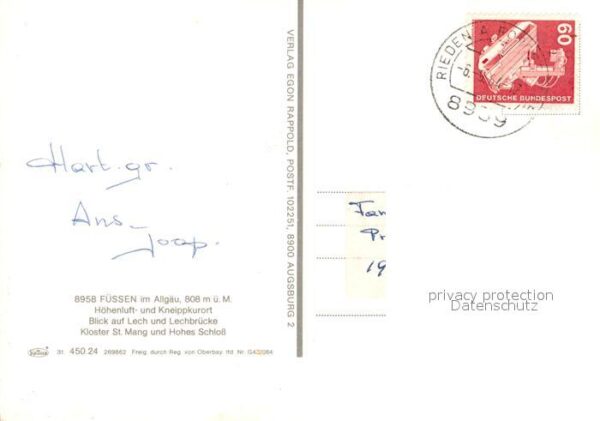 Hart. gr.
Ans -
Joop.
8958 FÜSSEN im Allgäu, 808 m ü. M.
Höhenluft- und Kneippkurort
Blick auf Lech und Lechbrücke
Kloster St. Mang und Hohes Schloß
31 450 24 269862 Freig. durch Reg. von Oberbay. lfd. Nr. G43/264
VERLAG EGON RAPPOLD, POSTF. 102251, 8900 AUGSBURG 2
RIEDEN A.
60
DEUTSCHE BUNDESPOST
Fam
Pr
19
privacy protection
Datenschutz